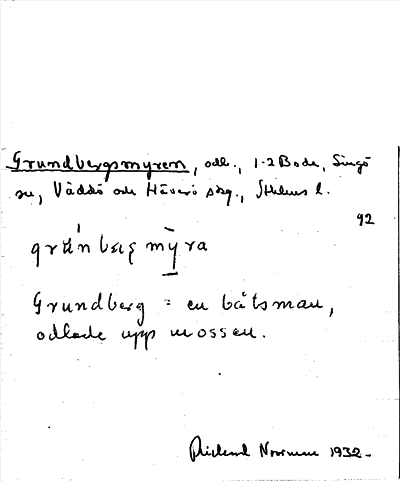 Grundbergsmyren, odl., 1-2 Boda, Singö
sn, Väddö och Häverö skg., Sthlms l.
92
grún bærg mỳra
Grundberg = en båtsman,
odlade upp mossen.
Rickard Norrman 1932.